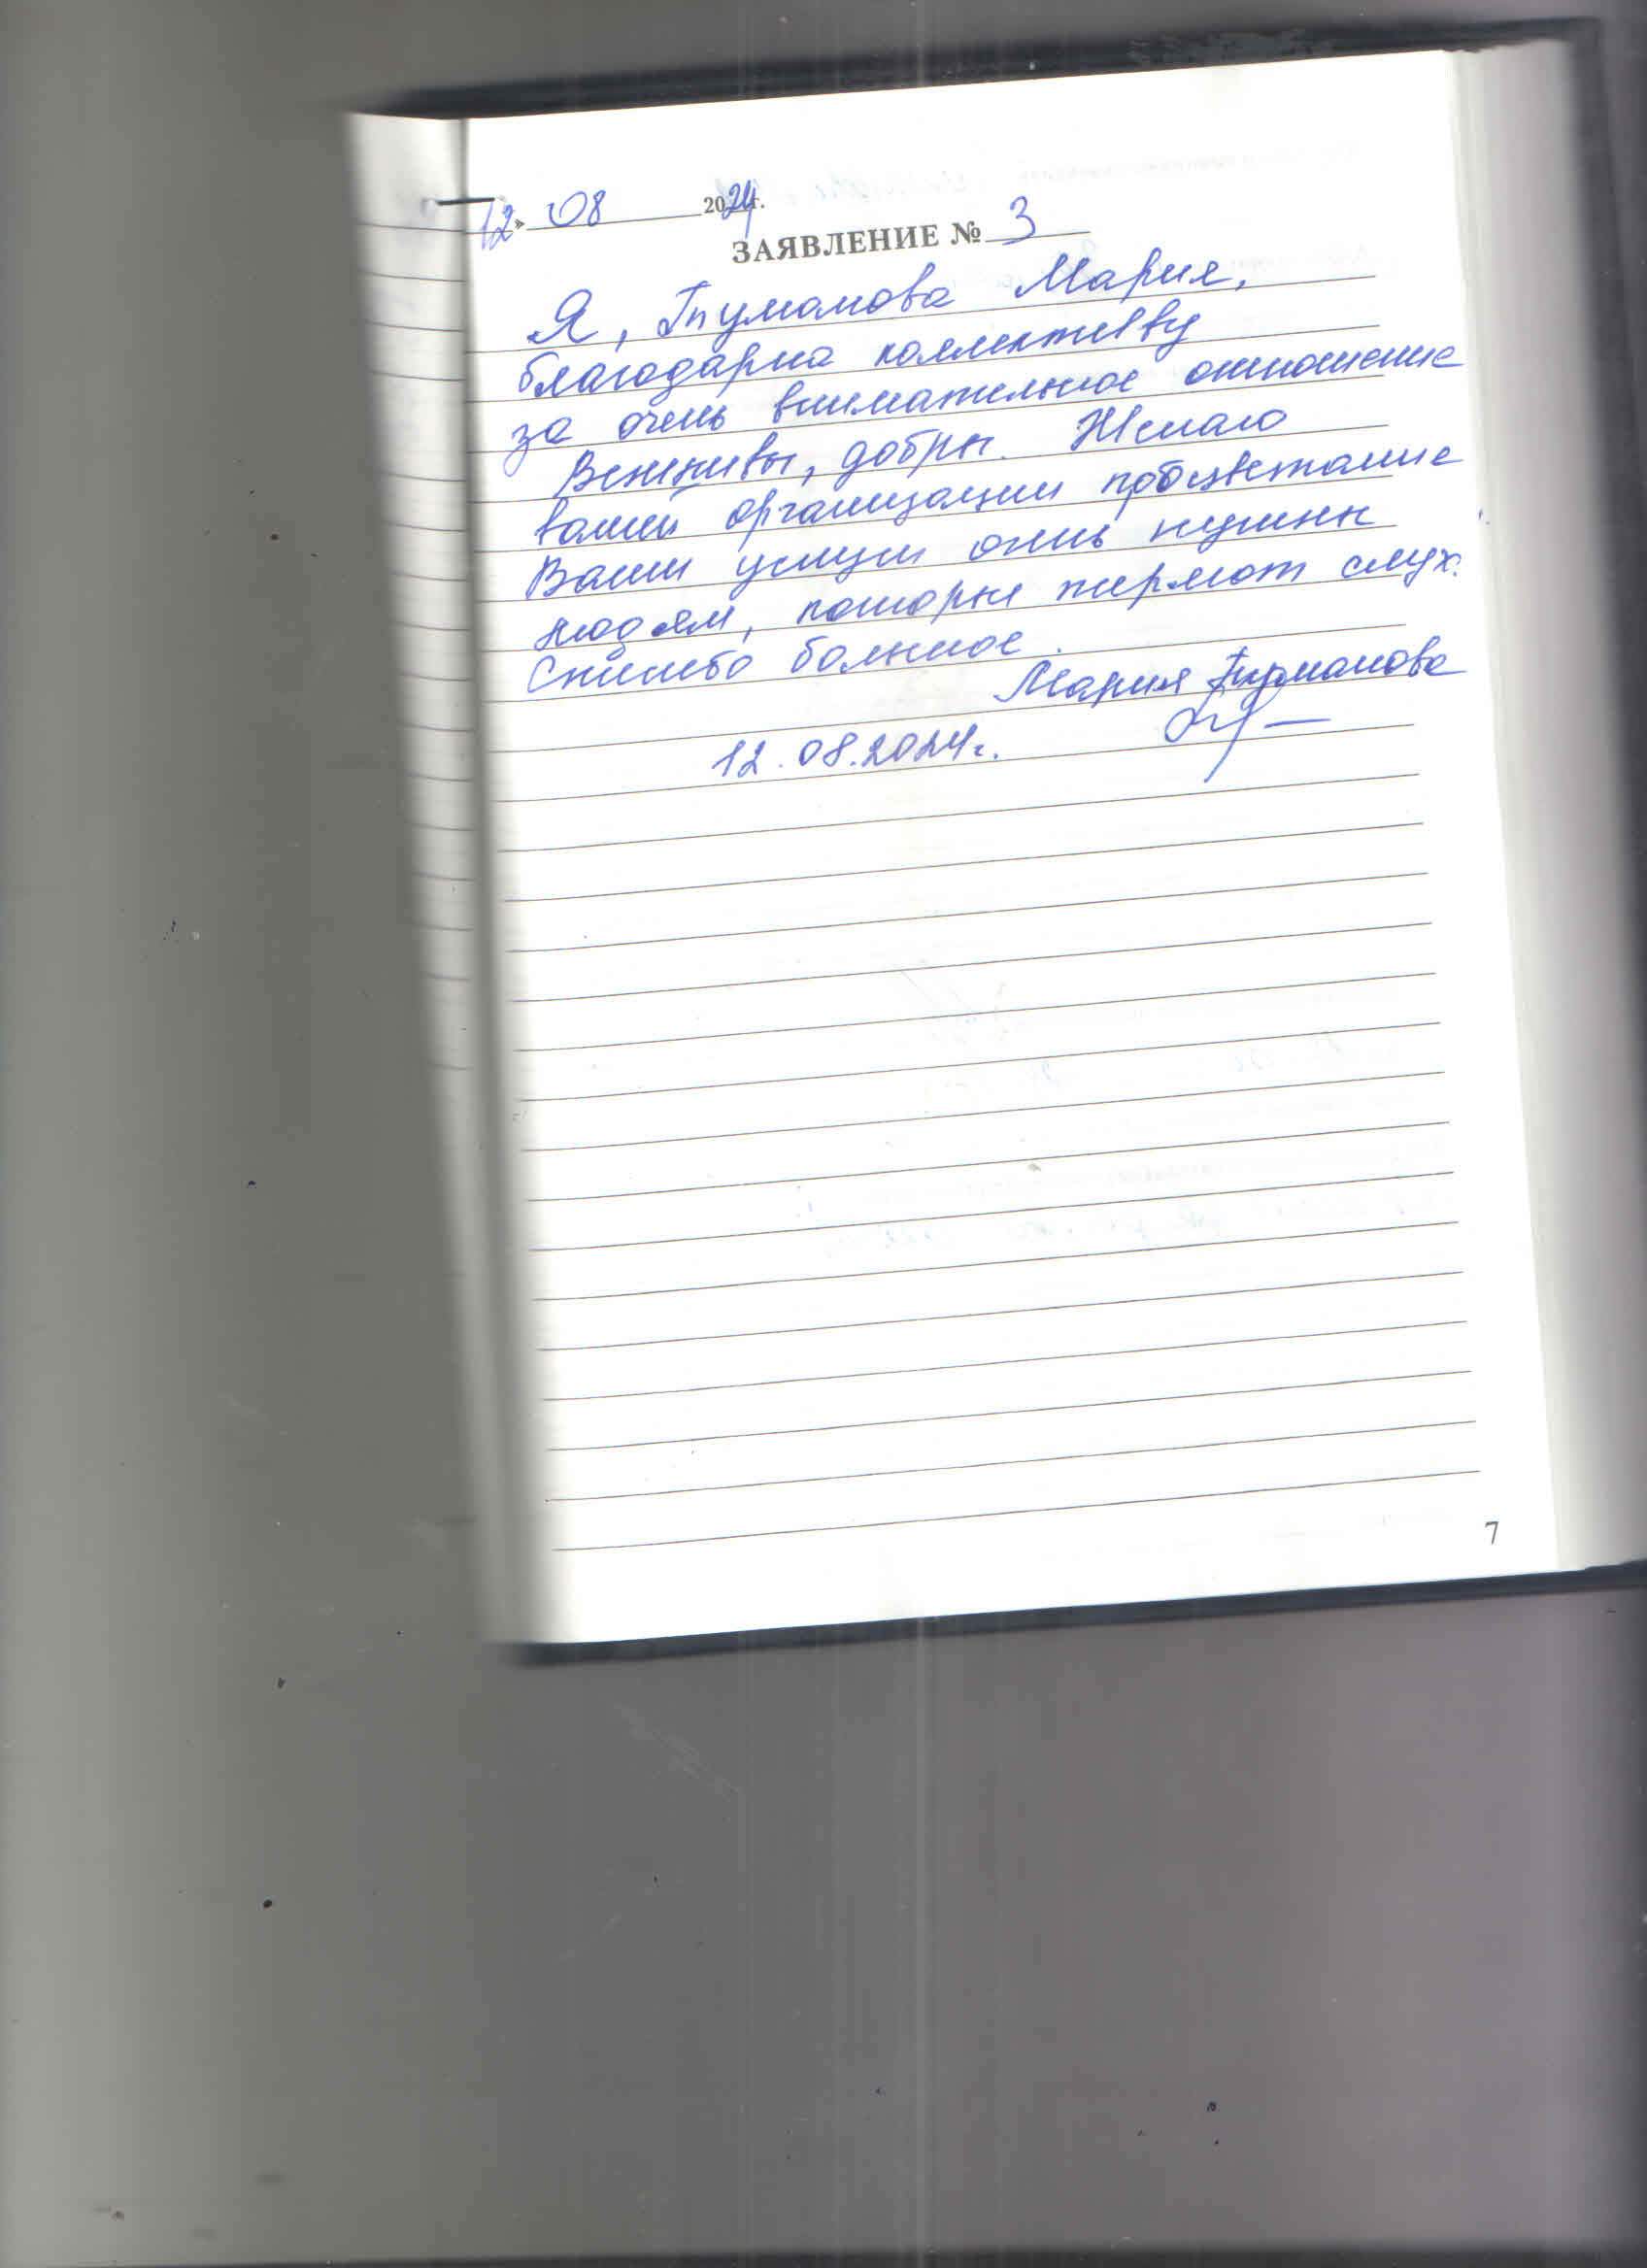 12» 08 2024г.
ЗАЯВЛЕНИЕ № 3
Я, Тумамова Мария,
благодарна коллективу
за очень внимательное отношение
Вежливы, добры. Желаю
вашей организации процветание
Ваши услуги очень нужны
людям, которые теряют слух.
Спасибо большое.
Мария Тумамова
12.08.2024г.
7